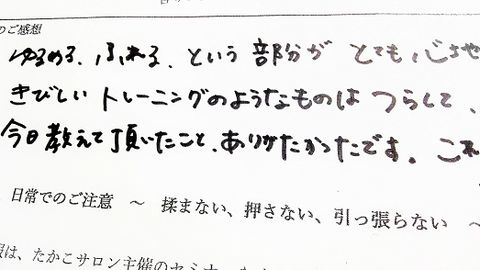 のご感想
ゆるめる、ふれる、という部分がとても心ちや
きびしいトレーニングのようなものはつらくて、
今日教えて頂いたこと、ありがたかったです。これ
日常でのご注意 ～ 揉まない、押さない、引っ張らない ～
は、たかこサロン主催のセミナー